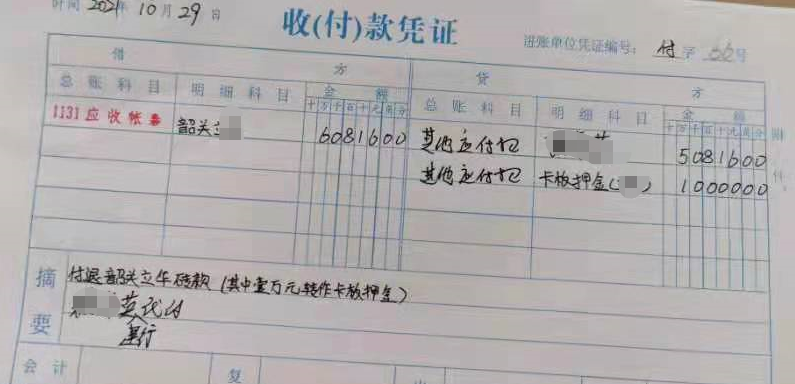 时间 2021年 10月 29日
收(付)款凭证
进账单位凭证编号: 付字 号
借 方 贷 方
总账科目 明细科目 金额 总账科目 明细科目 金额
十万千百十元角分 十万千百十元角分
1131应收帐 韶关立 6081600 其他应付款 5081600
其他应付款 卡板押金( ) 1000000
附件
摘要
付退韶关立华砖款(其中壹万元转作卡板押金)
英代付
建行
会计 复